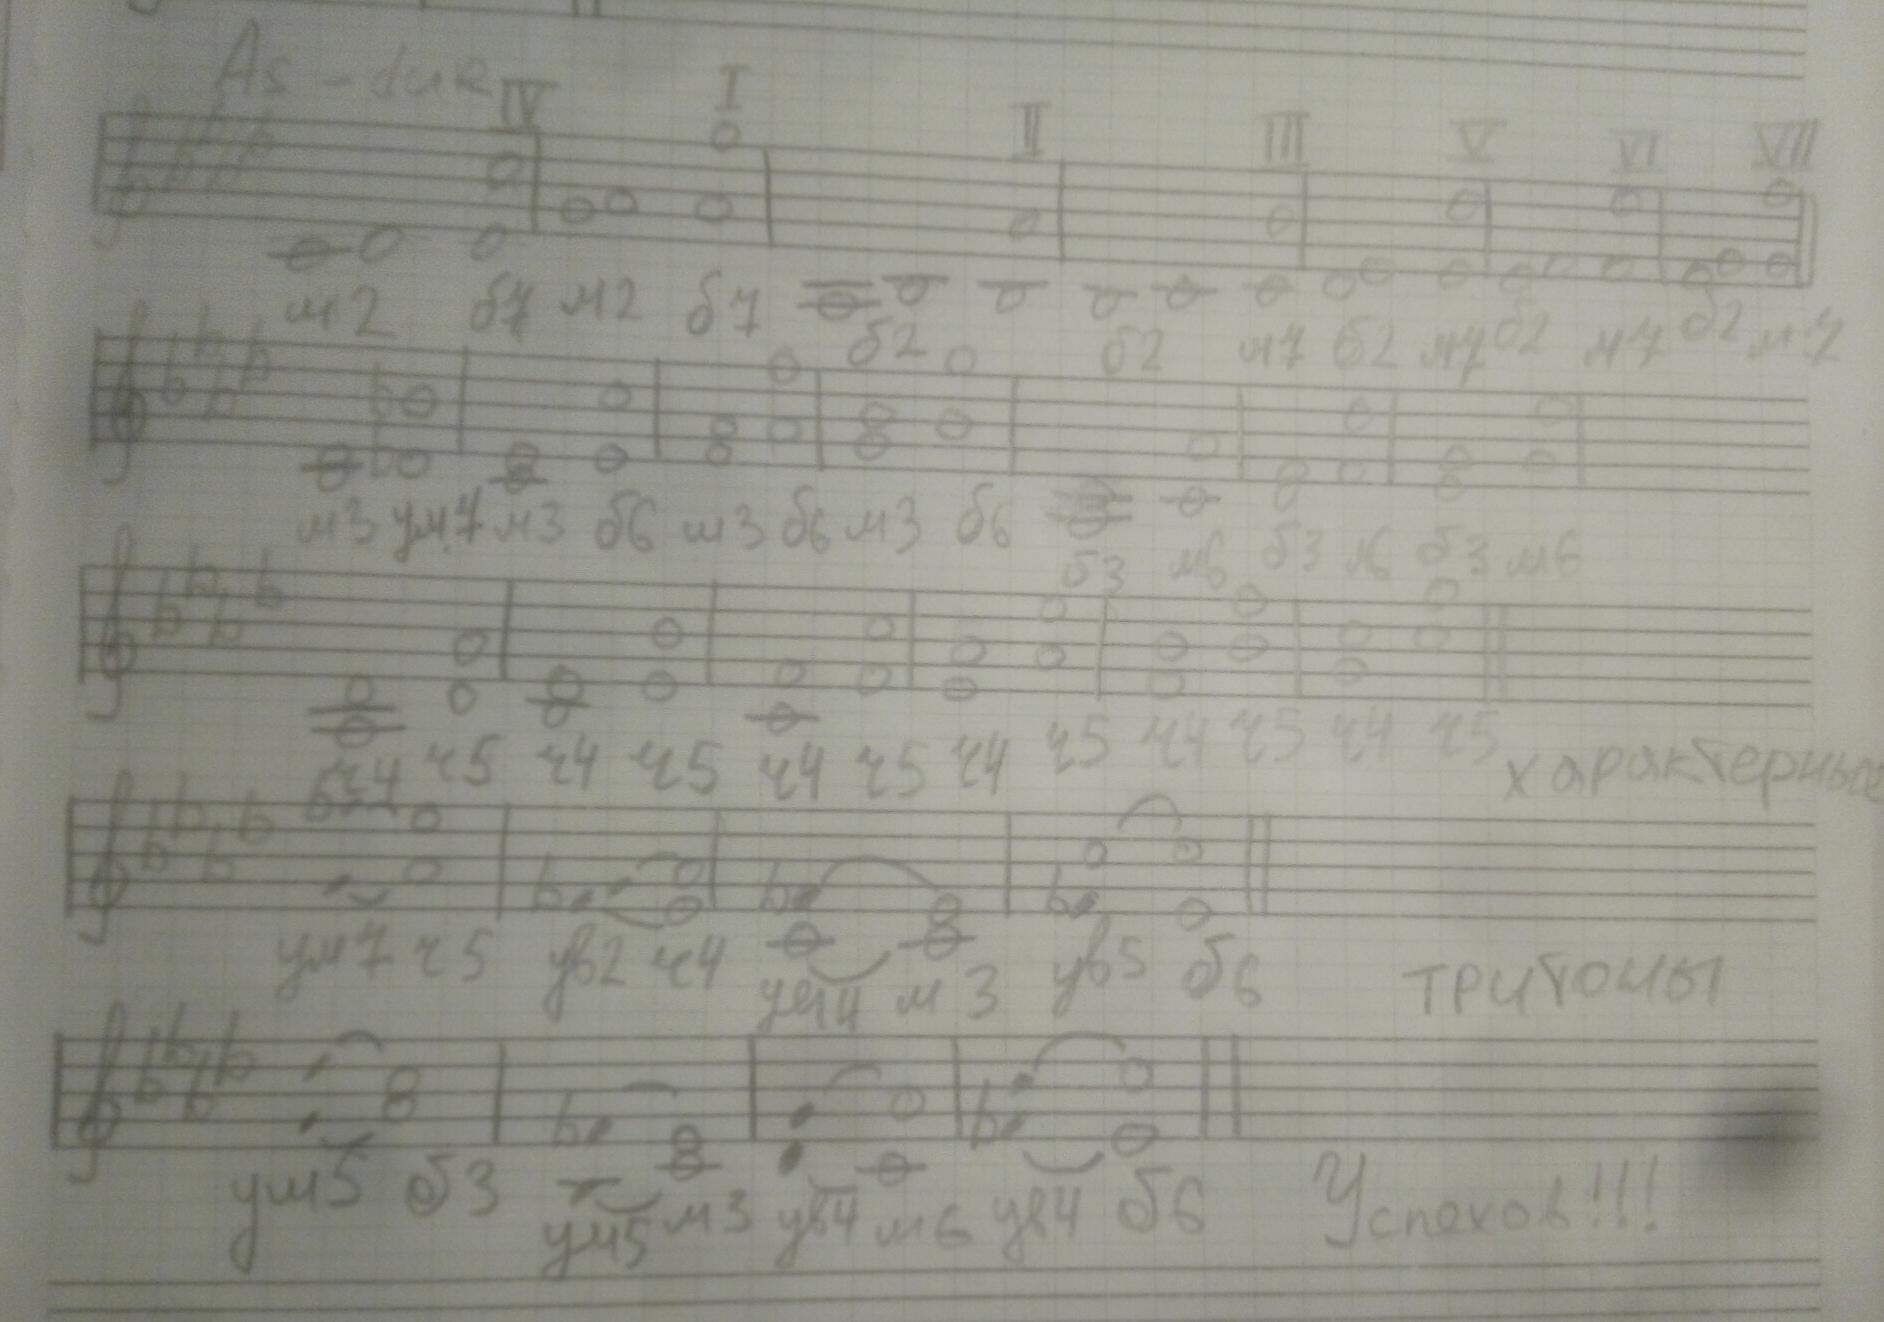 As-dur IV I II III V VI VII
м2 б7 м2 б7 б2 б2 м7 б2 м7 б2 м7 б2 м7
м3 ум.7 м3 б6 м3 б6 м3 б6 б3 м6 б3 м6 б3 м6
ч4 ч5 ч4 ч5 ч4 ч5 ч4 ч5 ч4 ч5 ч4 ч5
характерные
ум7 ч5 ув2 ч4 ум4 м3 ув5 б6
тритоны
ум5 б3 ум5 м3 ув4 м6 ув4 б6
Успехов!!!